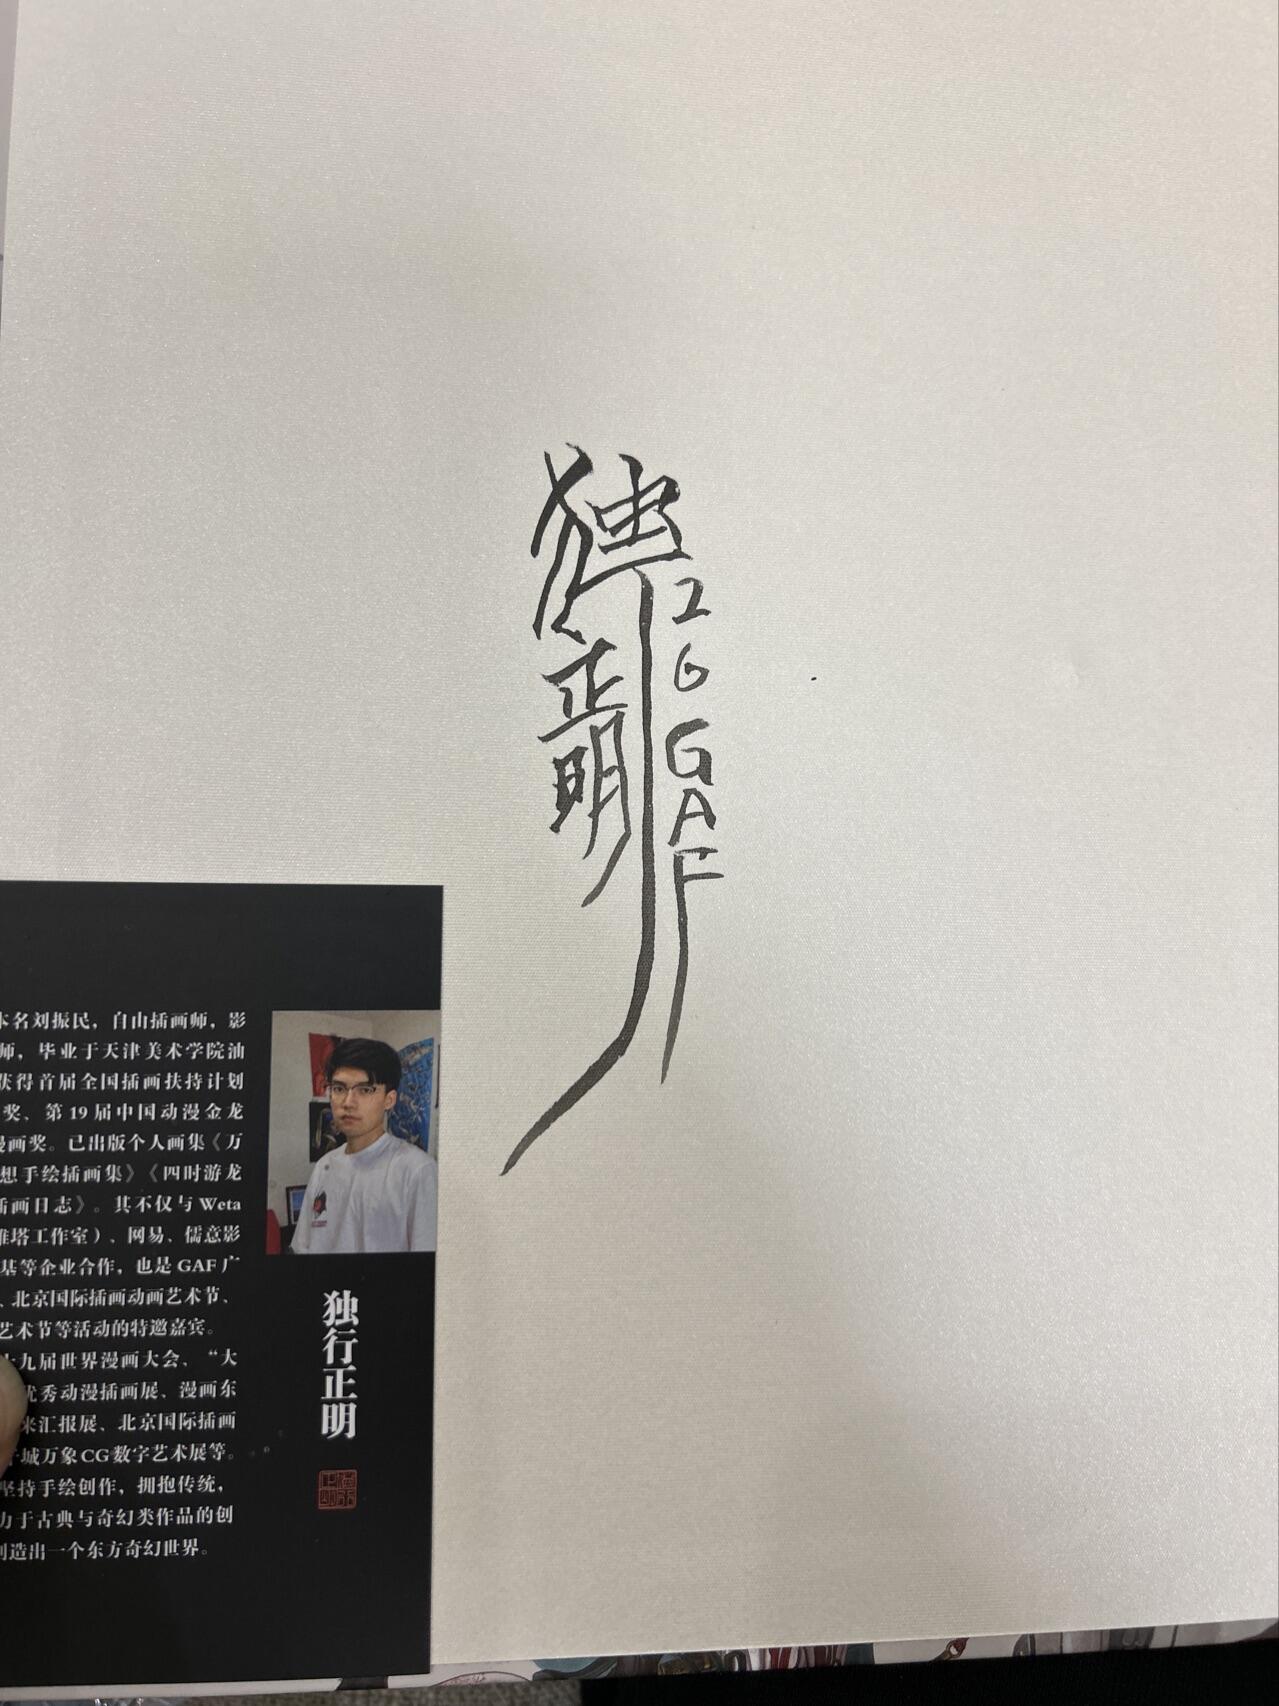 独行正明
26 GAF
本名刘振民，自由插画师，影
师，毕业于天津美术学院油
获得首届全国插画扶持计划
奖、第19届中国动漫金龙
漫画奖。已出版个人画集《万
想手绘插画集》《四时游龙
插画日志》。其不仅与Weta
维塔工作室）、网易、儒意影
基等企业合作，也是GAF广
、北京国际插画动画艺术节、
艺术节等活动的特邀嘉宾。
十九届世界漫画大会、“大
优秀动漫插画展、漫画东
来汇报展、北京国际插画
城万象CG数字艺术展等。
坚持手绘创作，拥抱传统，
力于古典与奇幻类作品的创
创造出一个东方奇幻世界。
独行正明